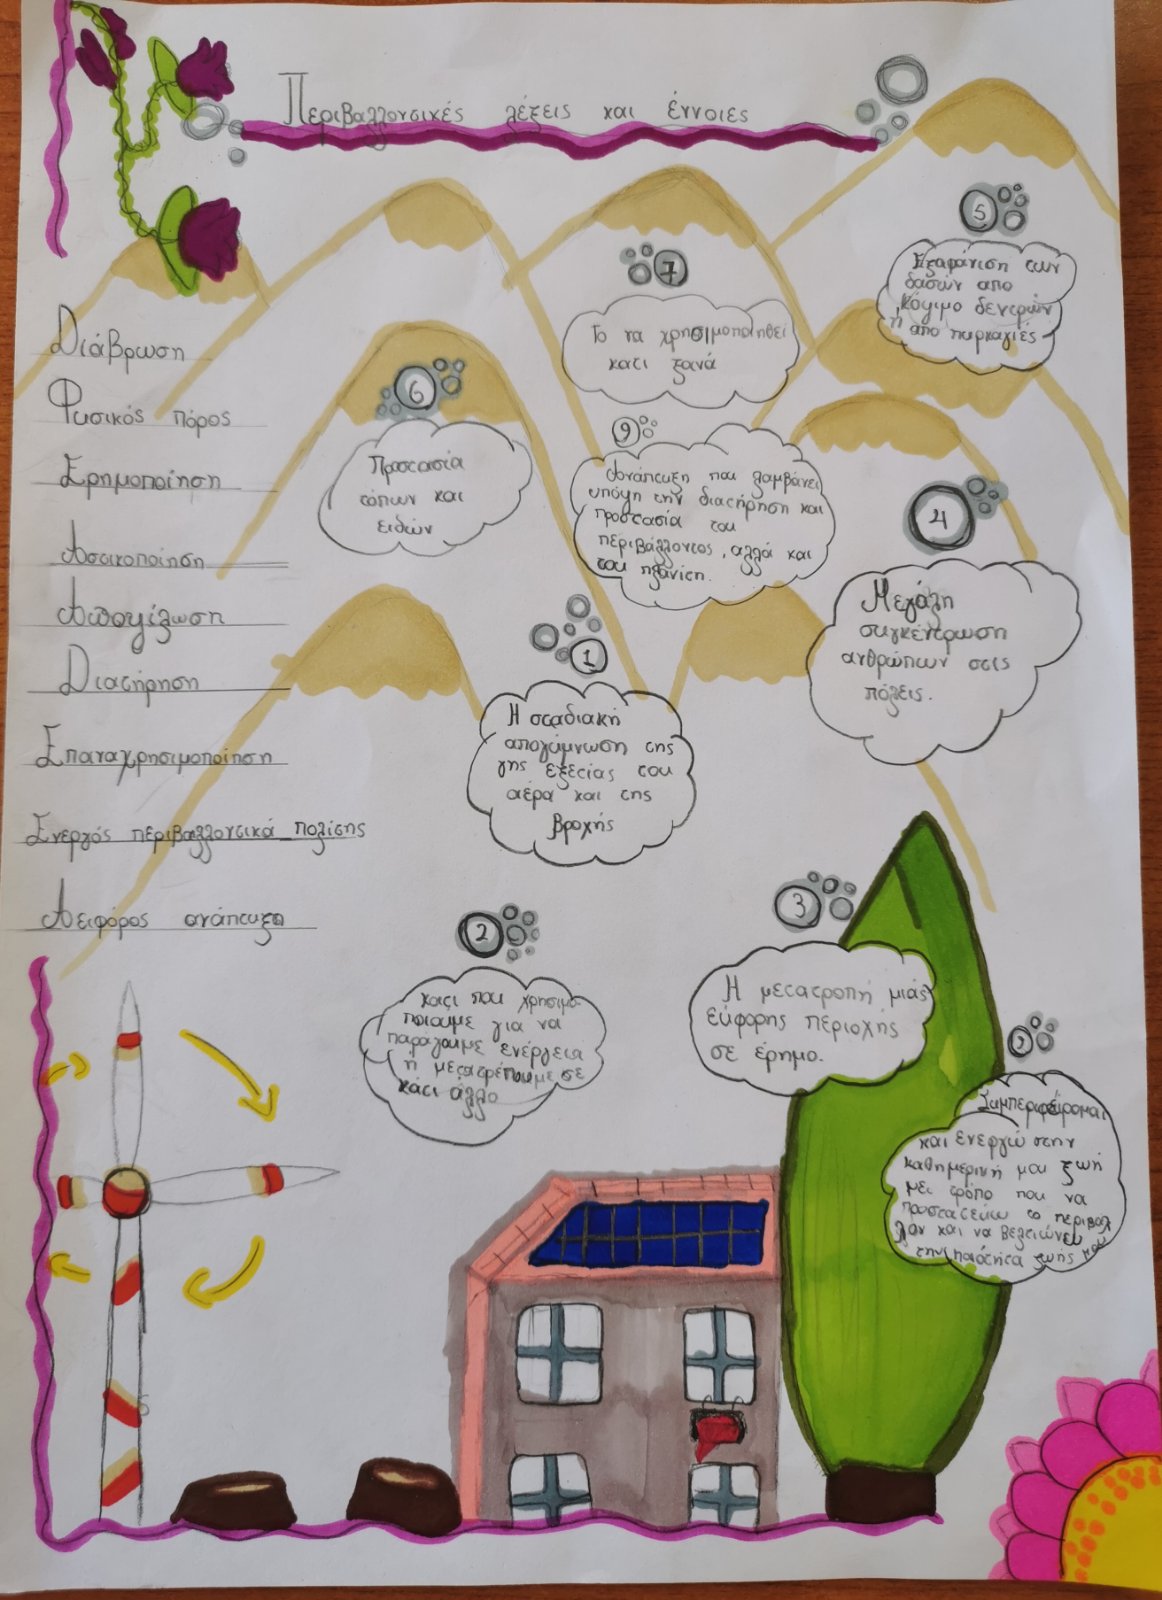 Περιβαλλοντικές λέξεις και έννοιες
Διάβρωση
Φυσικός πόρος
Ερημοποίηση
Αστικοποίηση
Αποψίλωση
Διατήρηση
Επαναχρησιμοποίηση
Ενεργός περιβαλλοντικά πολίτης
Αειφόρος ανάπτυξη
5
Εξαφάνιση των
δασών απο
κόψιμο δεντρών
ή απο πυρκαγιές
7
Το να χρησιμοποιηθεί
κατι ξανά
6
Προστασία
τόπων και
ειδών
9
Ανάπτυξη που λαμβάνει
υπόψη την διατήρηση και
προστασία του
περιβάλλοντος, αλλά και
του πλανίτη.
4
Μεγάλη
συγκέντρωση
ανθρώπων στις
πόλεις.
1
Η σταδιακή
απογύμνωση της
γης εξετίας του
αέρα και της
βροχής
2
κατι που χρησιμο-
ποιουμε για να
παράγουμε ενέργεια
ή μετατρέπουμε σε
κάτι άλλο
3
Η μετατροπή μιάς
εύφορης περιοχής
σε έρημο.
Συμπεριφέρομαι
και ενεργώ στην
καθημερινή μου ζωή
με τρόπο που να
προστατεύω το περιβάλ
λον και να βελτιώνεύ
την ποιότητα ζωής μου